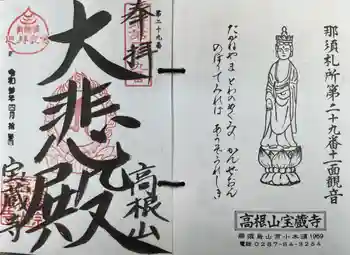 第二十九番
奉拝
大悲殿
高根山
宝蔵寺
那須札所第二十九番十一面観音
たかねやま とわのめぐみ かんぜおん
のぼりてみれば あうぞうれしき
高根山宝蔵寺
那須烏山市小木須1969
電話 0287-84-3254